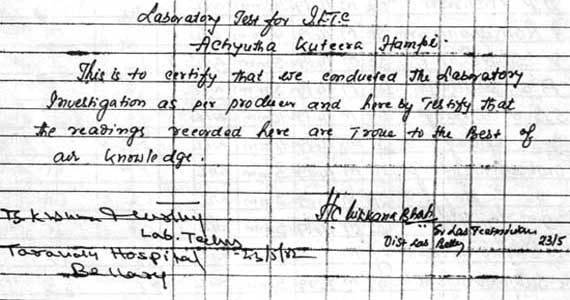 Laboratory Test for I.F.T.C
Achyutha Kuteera Hampi.
This is to certify that we conducted the Laboratory
Investigation as per producer and here by Testify that
the readings recorded here are Troue to the Best of
our knowledge.
Lab. Techn
Taranath Hospital - 23/5/82
Bellary
H Chikkana Bhat
Sr Las
Dist Las Bellry 23/5